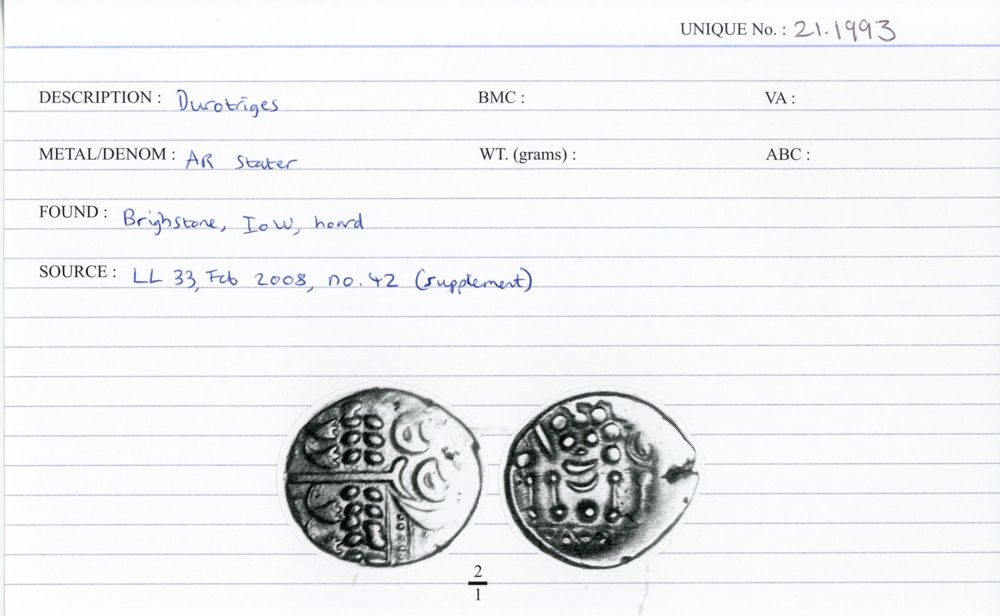 UNIQUE No. : 21.1993
DESCRIPTION : Durotriges BMC : VA :
METAL/DENOM : AR Stater WT. (grams) : ABC :
FOUND : Brighstone, IoW, hoard
SOURCE : LL 33, Feb 2008, no. 42 (supplement)
2
1